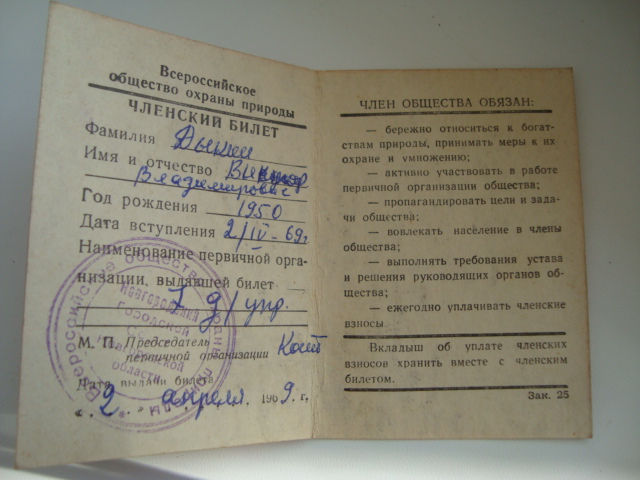 Всероссийское
общество охраны природы
ЧЛЕНСКИЙ БИЛЕТ
Фамилия
Имя и отчество Виктор
Владимирович
Год рождения 1950
Дата вступления 2/IV-69г
Наименование первичной орга-
низации, выдавшей билет
М. П. Председатель
первичной организации
Дата выдачи билета
„2" апреля 1969 г.
ЧЛЕН ОБЩЕСТВА ОБЯЗАН:
— бережно относиться к богат-
ствам природы, принимать меры к их
охране и умножению;
— активно участвовать в работе
первичной организации общества;
— пропагандировать цели и зада-
чи общества;
— вовлекать население в члены
общества;
— выполнять требования устава
и решения руководящих органов об-
щества;
— ежегодно уплачивать членские
взносы
Вкладыш об уплате членских
взносов хранить вместе с членским
билетом.
Зак. 25